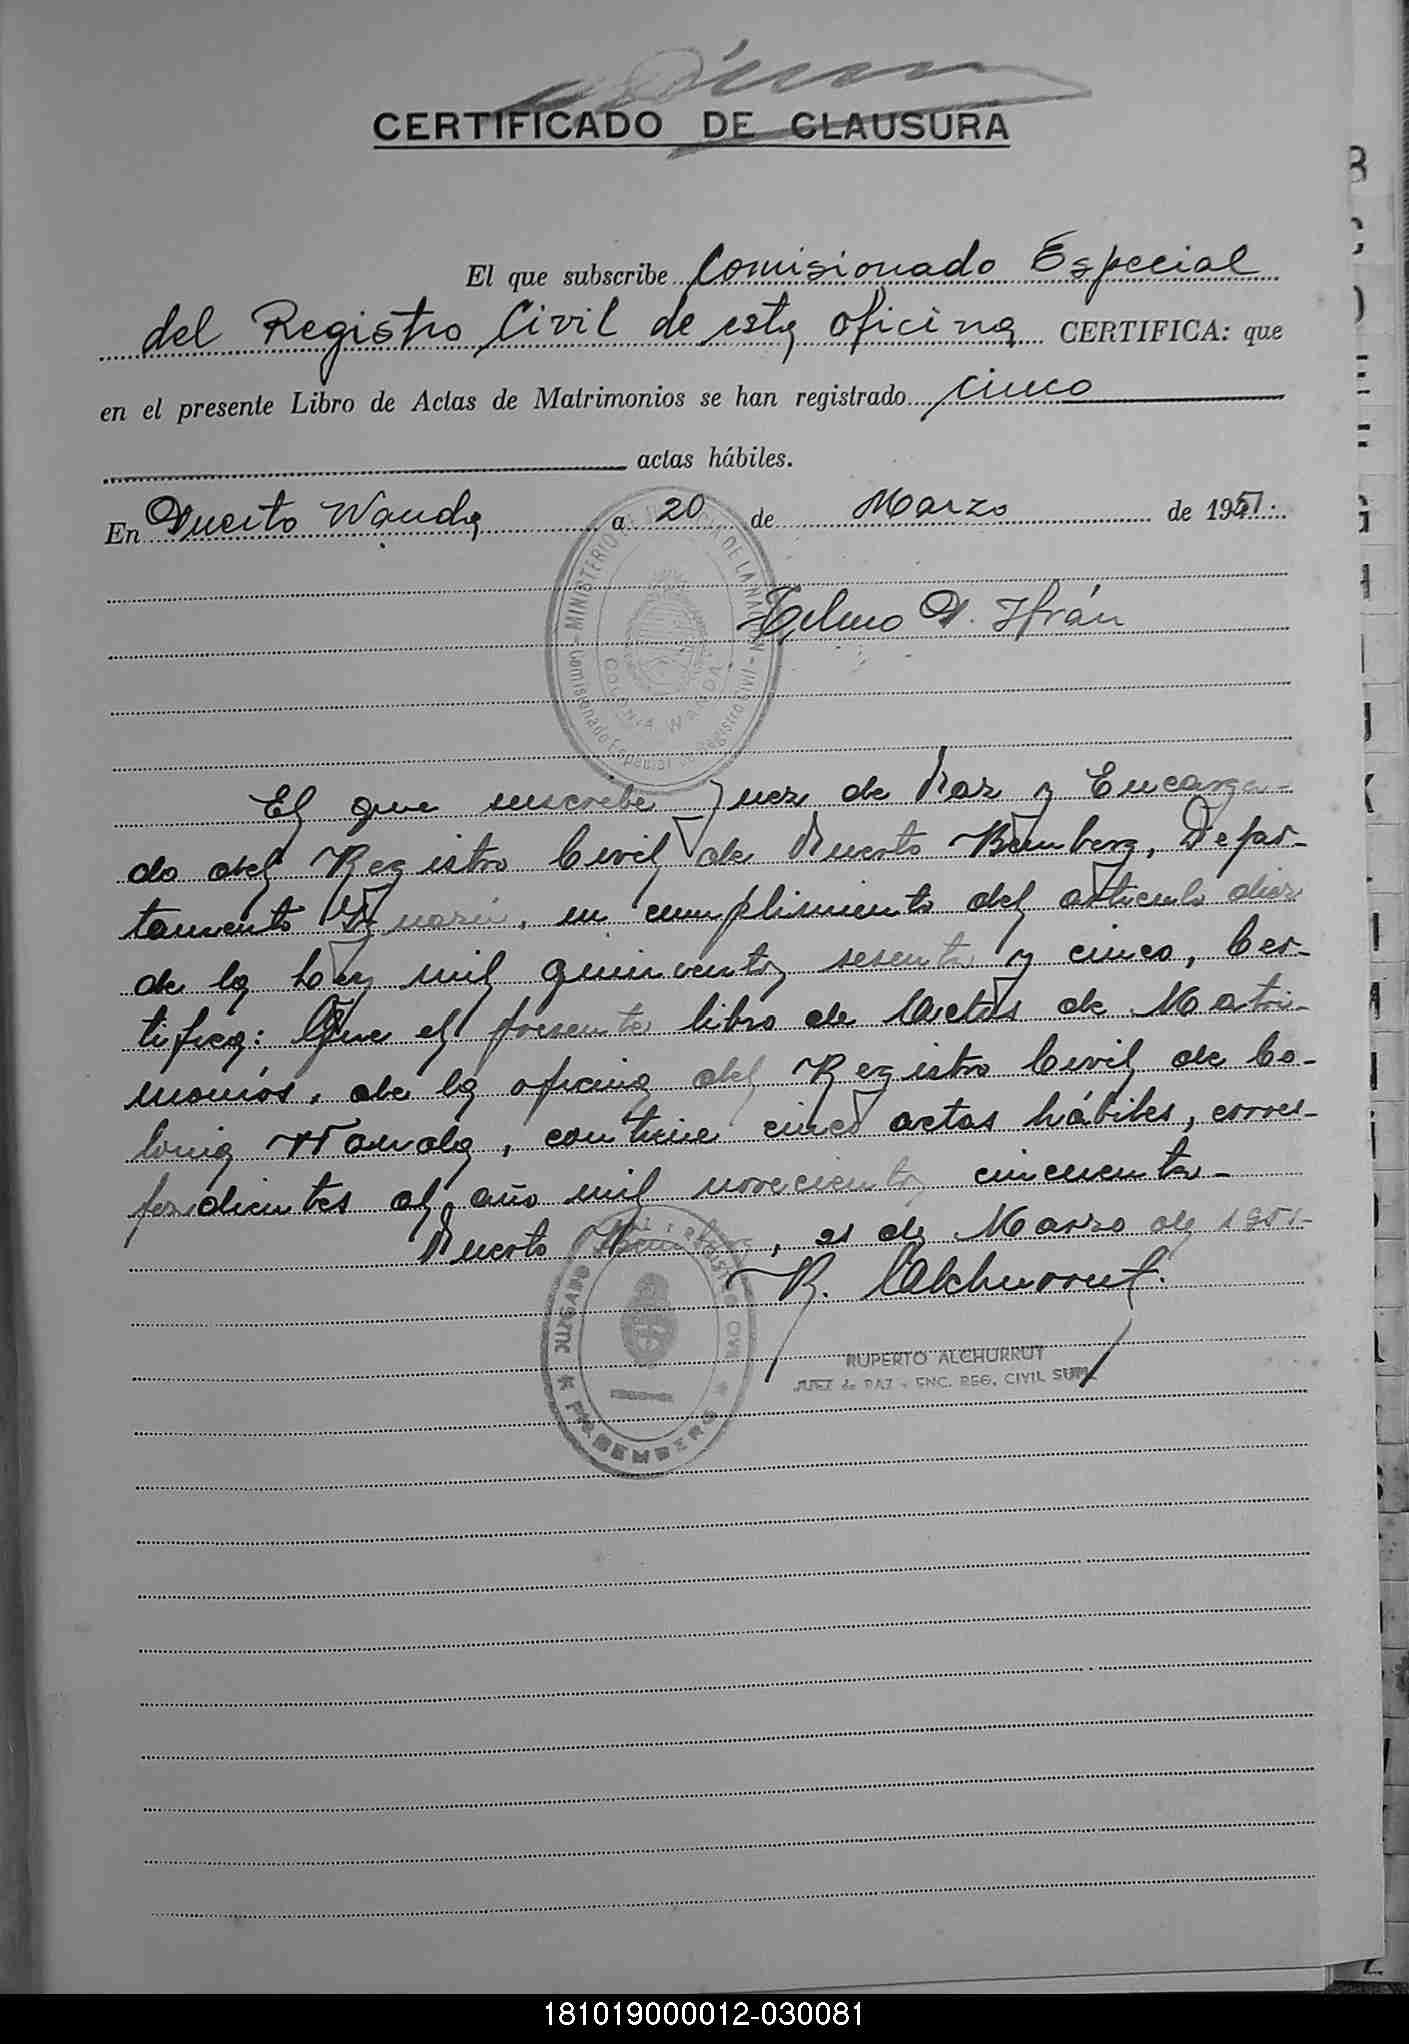 CERTIFICADO DE CLAUSURA
El que subscribe Comisionado Especial
del Registro Civil de esta oficina CERTIFICA: que
en el presente Libro de Actas de Matrimonios se han registrado cinco
actas hábiles.
En Puerto Wanda a 20 de Marzo de 1951.
MINISTERIO DE DE LA NACION
Comisionado Especial de Registro Civil
COLONIA WANDA
Telmo P. Ifrán
El que suscribe Juez de Paz y Encarga-
do del Registro Civil de Puerto Bemberg, Depar-
tamento Iguazú, en cumplimiento del artículo diez
de la Ley mil quinientos sesenta y cinco, Cer-
tifica: Que el presente libro de Actas de Matri-
monios, de la oficina del Registro Civil de Co-
lonia Wanda, contiene cinco actas hábiles, corres-
pondientes al año mil novecientos cincuenta-
Puerto Bemberg, 21 de Marzo de 1951-
R. Alchurrut
JUZGADO
BEMBERG
RUPERTO ALCHURRUT
JUEZ de PAZ - ENC. REG. CIVIL SUPL.
181019000012-030081